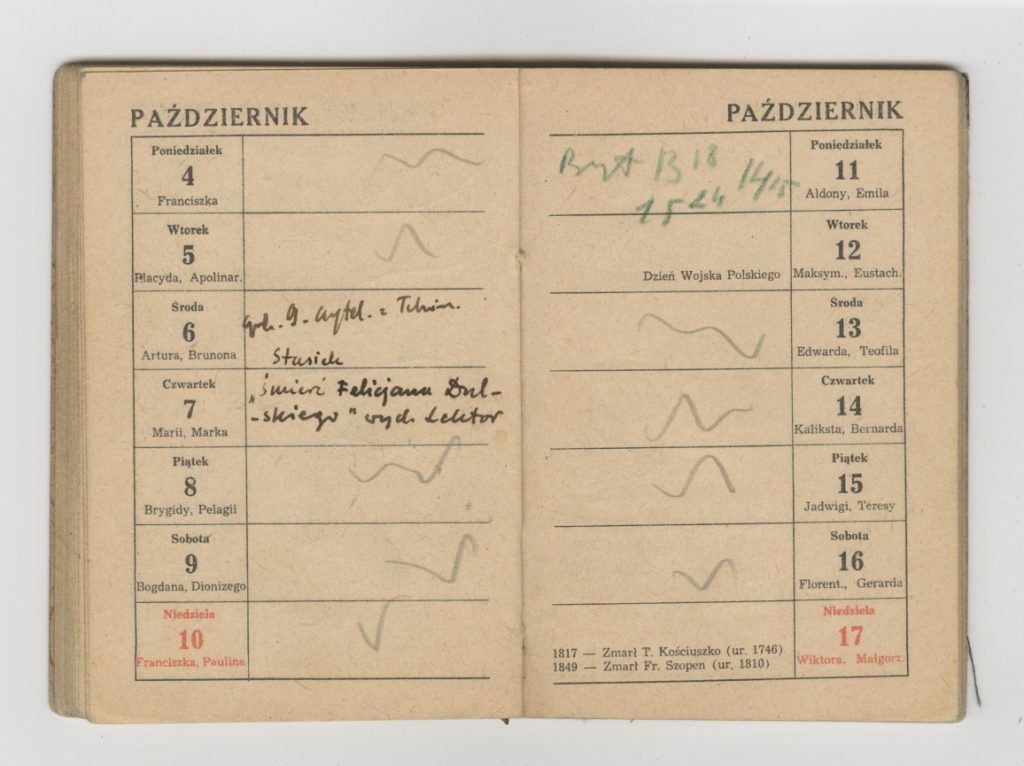 PAŹDZIERNIK
Poniedziałek
4
Franciszka
Wtorek
5
Placyda, Apolinar.
Środa
6
Artura, Brunona
godz. 9.
Stasiek
Czwartek
7
Marii, Marka
„Śmierć Felicjana Dul-
-skiego" wyd. Lektor
Piątek
8
Brygidy, Pelagii
Sobota
9
Bogdana, Dionizego
Niedziela
10
Franciszka, Paulina
PAŹDZIERNIK
Poniedziałek
11
Aldony, Emila
B 18 14/15
15 24
Wtorek
12
Maksym., Eustach.
Dzień Wojska Polskiego
Środa
13
Edwarda, Teofila
Czwartek
14
Kaliksta, Bernarda
Piątek
15
Jadwigi, Teresy
Sobota
16
Florent., Gerarda
Niedziela
17
Wiktora, Małgorz.
1817 — Zmarł T. Kościuszko (ur. 1746)
1849 — Zmarł Fr. Szopen (ur. 1810)